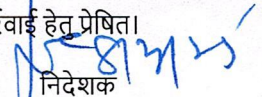 र्वाई हेतु प्रेषित।
निदेशक